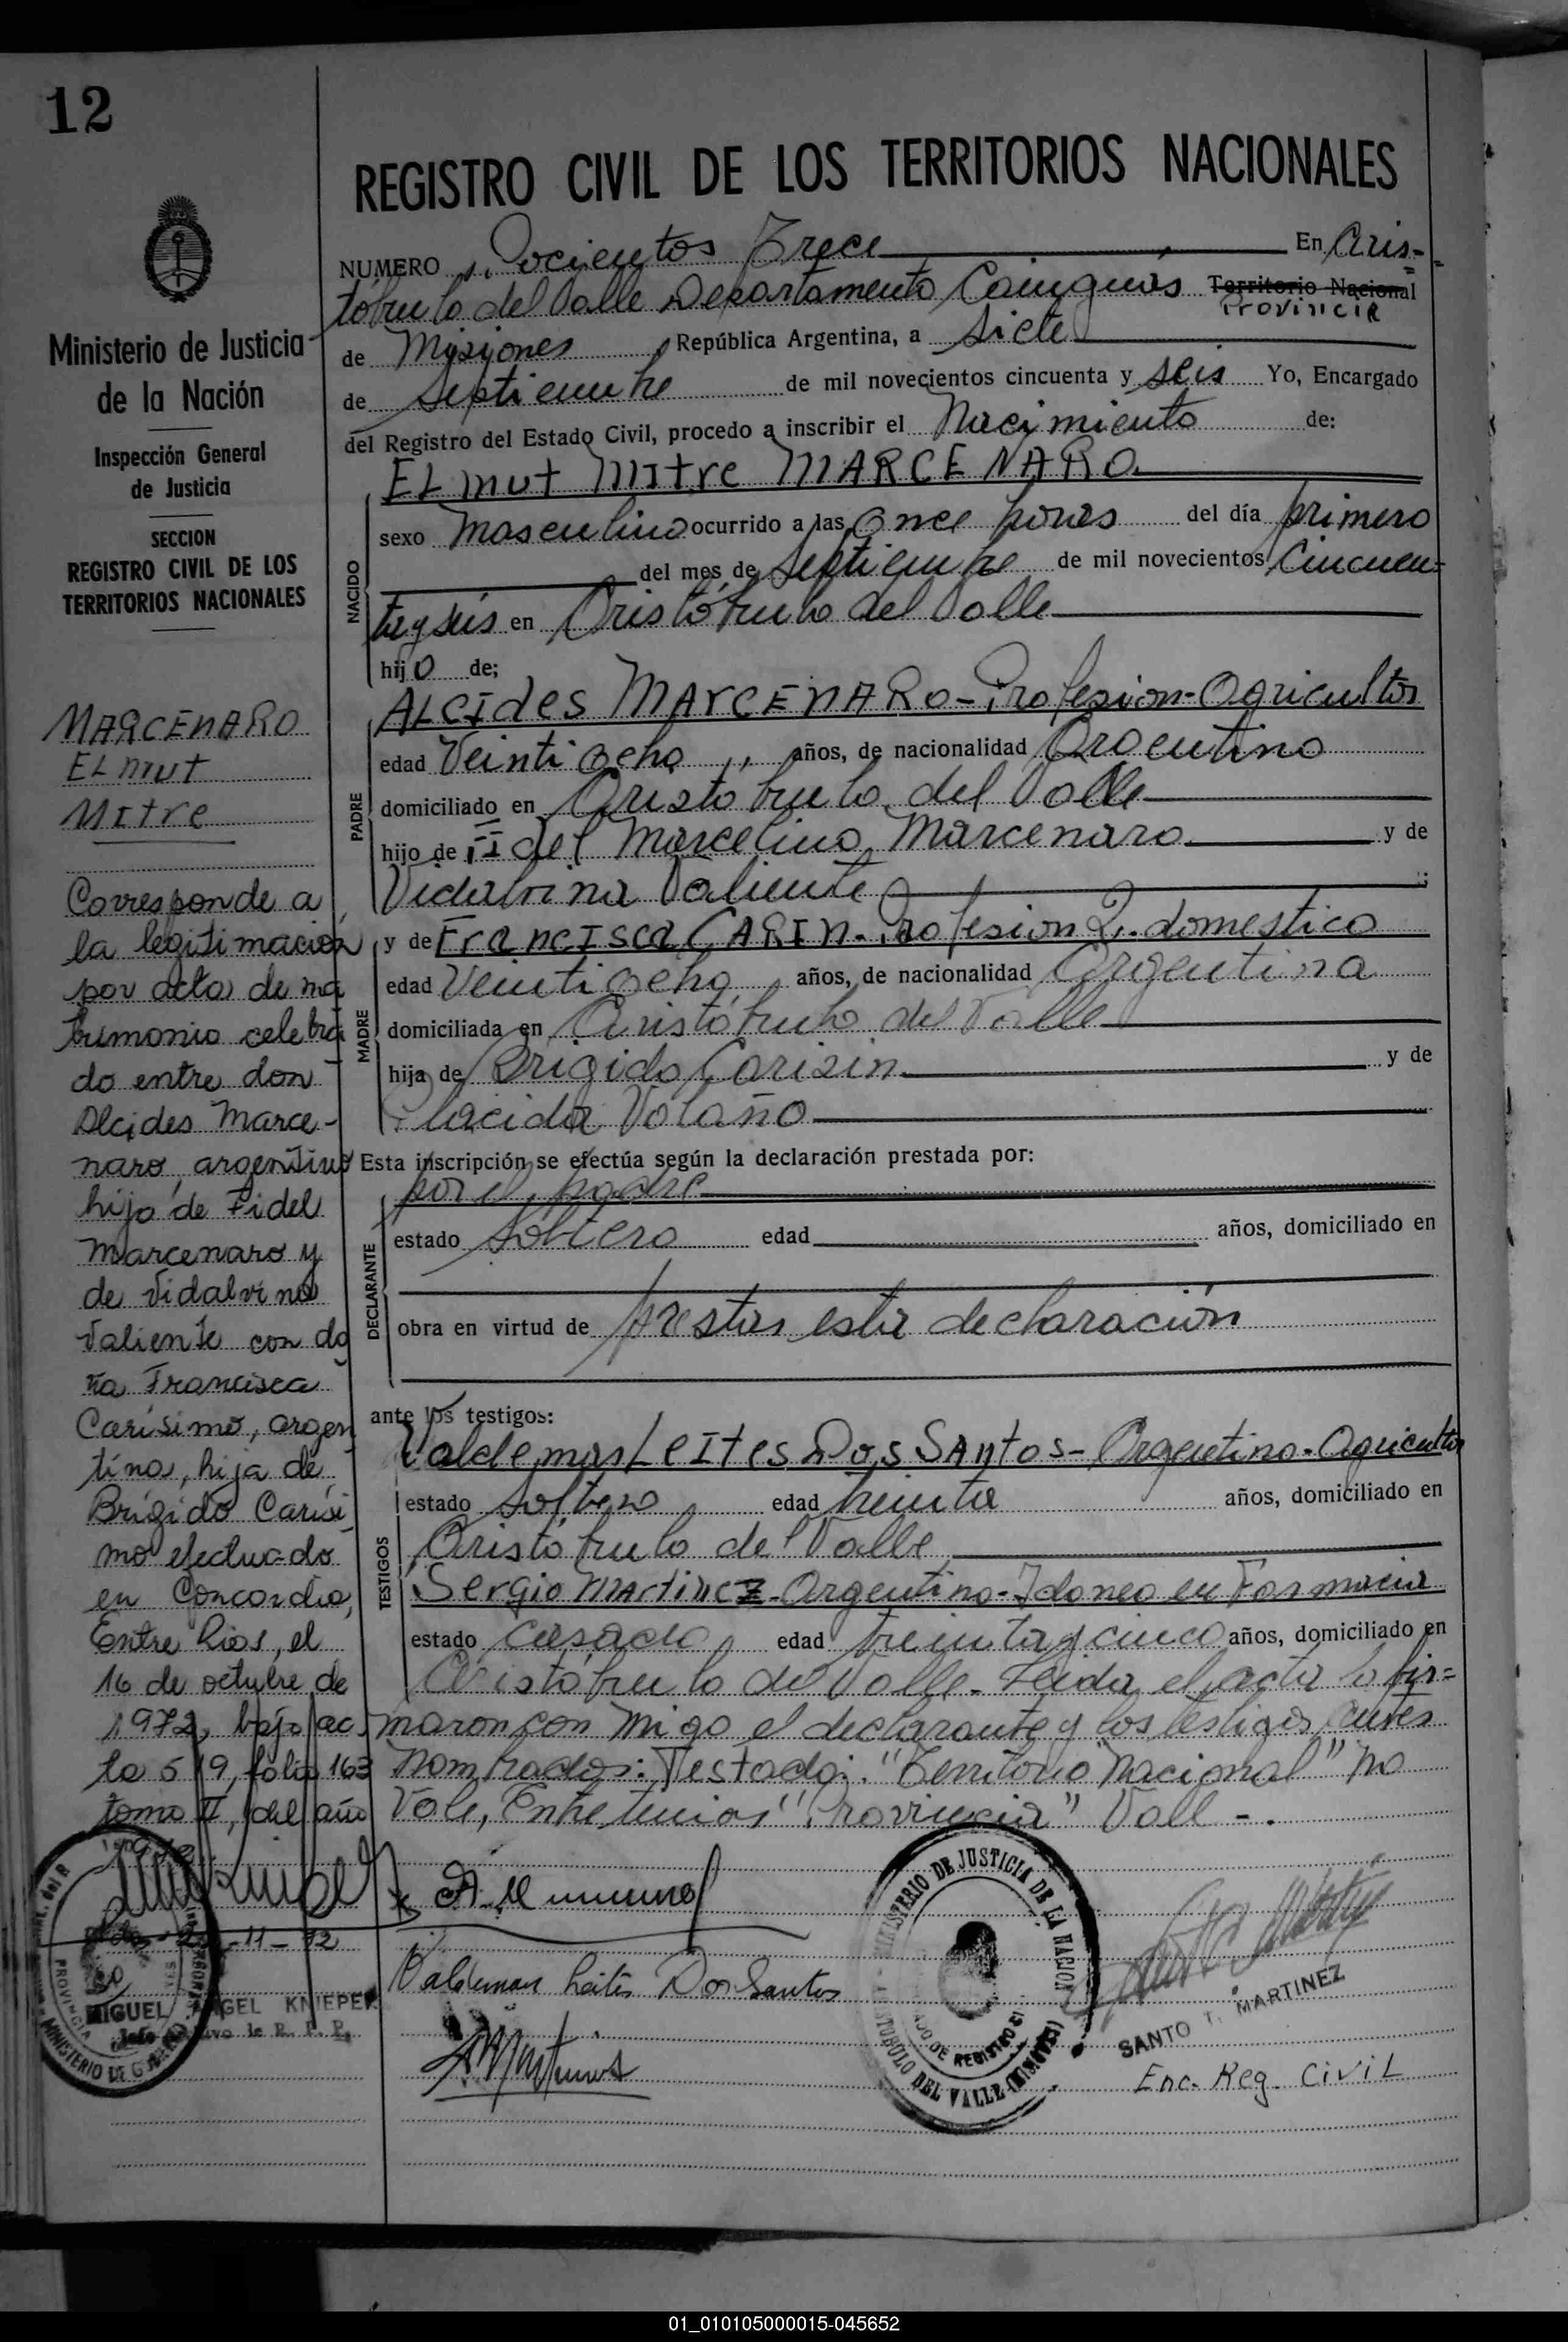 12
REGISTRO CIVIL DE LOS TERRITORIOS NACIONALES
NUMERO Docientos Trece En Aris-
tóbulo del Valle Departamento Cainguás Territorio Nacional
Provincia
de Misiones República Argentina, a siete
de septiembre de mil novecientos cincuenta y seis Yo, Encargado
del Registro del Estado Civil, procedo a inscribir el Nacimiento de:
ELmut MItre MARCENARO
NACIDO
sexo Masculino ocurrido a las once horas del día primero
del mes de septiembre de mil novecientos cincuen-
tayseis en Aristóbulo del Valle
hijo de;
PADRE
ALCIdes MArCENARO - Profesion - Agricultor
edad Veintiocho años, de nacionalidad Argentino
domiciliado en Aristobulo del Valle
hijo de Fidel Marcelino Marcenaro y de
Vidalvina Valiente
MADRE
y de FrancIsca CARIN - Profesion Q. domestico
edad Veintiocho años, de nacionalidad Argentina
domiciliada en Aristóbulo del Valle
hija de Brigido Carisin y de
Placida Volaño
Esta inscripción se efectúa según la declaración prestada por:
DECLARANTE
por el padre
estado soltero edad años, domiciliado en
obra en virtud de prestar esta declaración
ante los testigos:
TESTIGOS
Valdemar LeItes Dos SAntos - Argentino - Agricultor
estado soltero edad treinta años, domiciliado en
Aristóbulo del Valle
Sergio MArtinez - Argentino - Idoneo en Farmacia
estado casado edad treinta y cinco años, domiciliado en
Aristóbulo del Valle - Leida el acta la fir=
maron con migo el declarante y los testigos antes
nombrados: Testado: "Territorio Nacional" no
Vale, Entre lineas "Provincia" Vale -.
Valdemar Leites Dos Santos
MINISTERIO DE JUSTICIA DE LA NACION
SANTO T. MARTINEZ
Enc. Reg. CiViL
Ministerio de Justicia
de la Nación
Inspección General
de Justicia
SECCION
REGISTRO CIVIL DE LOS
TERRITORIOS NACIONALES
MARCENARO
ELmut
MItre
Corresponde a
la legitimación
por acta de ma
trimonio celebra
do entre don
Alcides Marce-
naro, argentino
hijo de Fidel
Marcenaro y
de Vidalvina
Valiente con do
ña Francisca
Carísimo, argen
tina, hija de
Brígido Carísi
mo efectuado
en Concordia,
Entre Ríos, el
16 de octubre de
1972, bajo ac
ta 519, folio 163
tomo II, del año
1972
-11-72
MIGUEL ANGEL KNIEPER
01_010105000015-045652